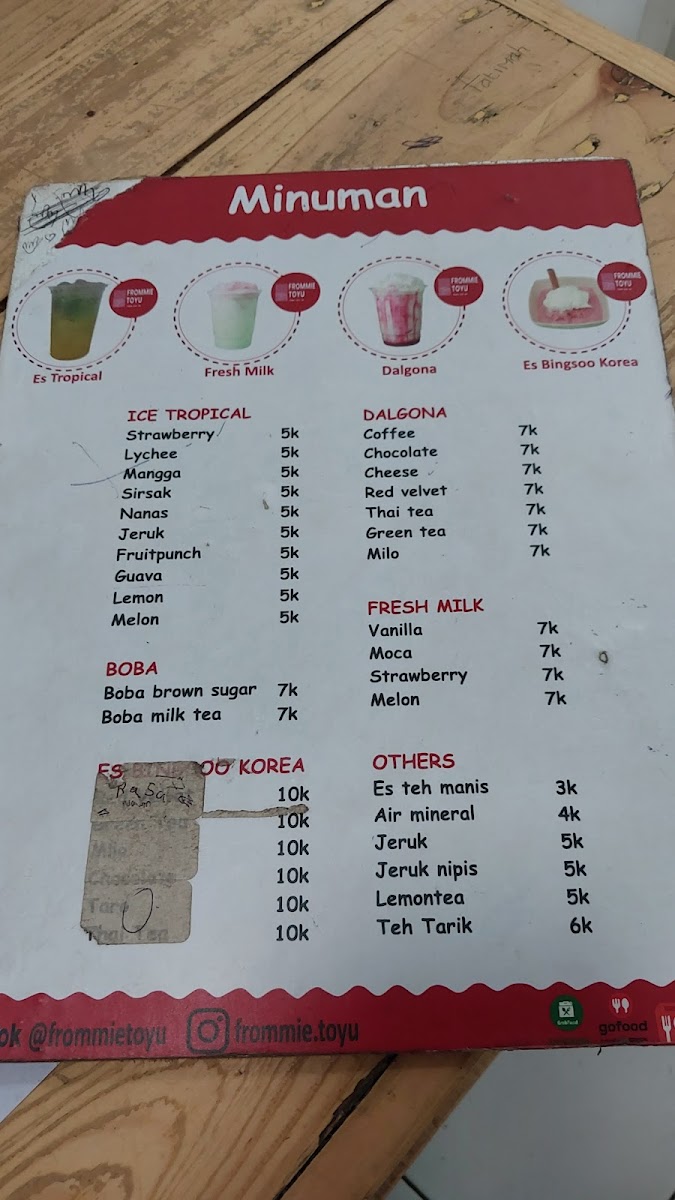 Fatimah
Minuman
FROMMIE TOYU
FROMMIE TOYU
FROMMIE TOYU
FROMMIE TOYU
Es Tropical
Fresh Milk
Dalgona
Es Bingsoo Korea
ICE TROPICAL
Strawberry 5k
Lychee 5k
Mangga 5k
Sirsak 5k
Nanas 5k
Jeruk 5k
Fruitpunch 5k
Guava 5k
Lemon 5k
Melon 5k
BOBA
Boba brown sugar 7k
Boba milk tea 7k
ES BINGSOO KOREA
Rasa
10k
Green Tea 10k
Milo 10k
Chocolate 10k
Taro 10k
Thai tea 10k
DALGONA
Coffee 7k
Chocolate 7k
Cheese 7k
Red velvet 7k
Thai tea 7k
Green tea 7k
Milo 7k
FRESH MILK
Vanilla 7k
Moca 7k
Strawberry 7k
Melon 7k
OTHERS
Es teh manis 3k
Air mineral 4k
Jeruk 5k
Jeruk nipis 5k
Lemontea 5k
Teh Tarik 6k
ok @frommietoyu frommie.toyu
GrabFood
gofood